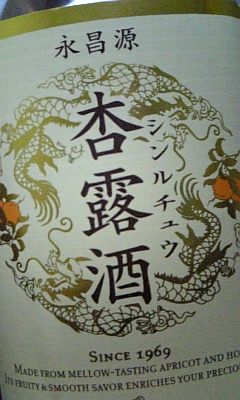 永昌源
杏露酒
シンルチュウ
SINCE 1969
MADE FROM MELLOW-TASTING APRICOT AND HO
ITS FRUITY & SMOOTH SAVOR ENRICHES YOUR PRECIOU